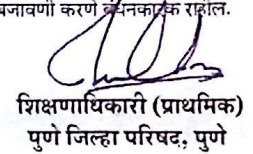 बजावणी करणे बंधनकारक राहील.
शिक्षणाधिकारी (प्राथमिक)
पुणे जिल्हा परिषद, पुणे